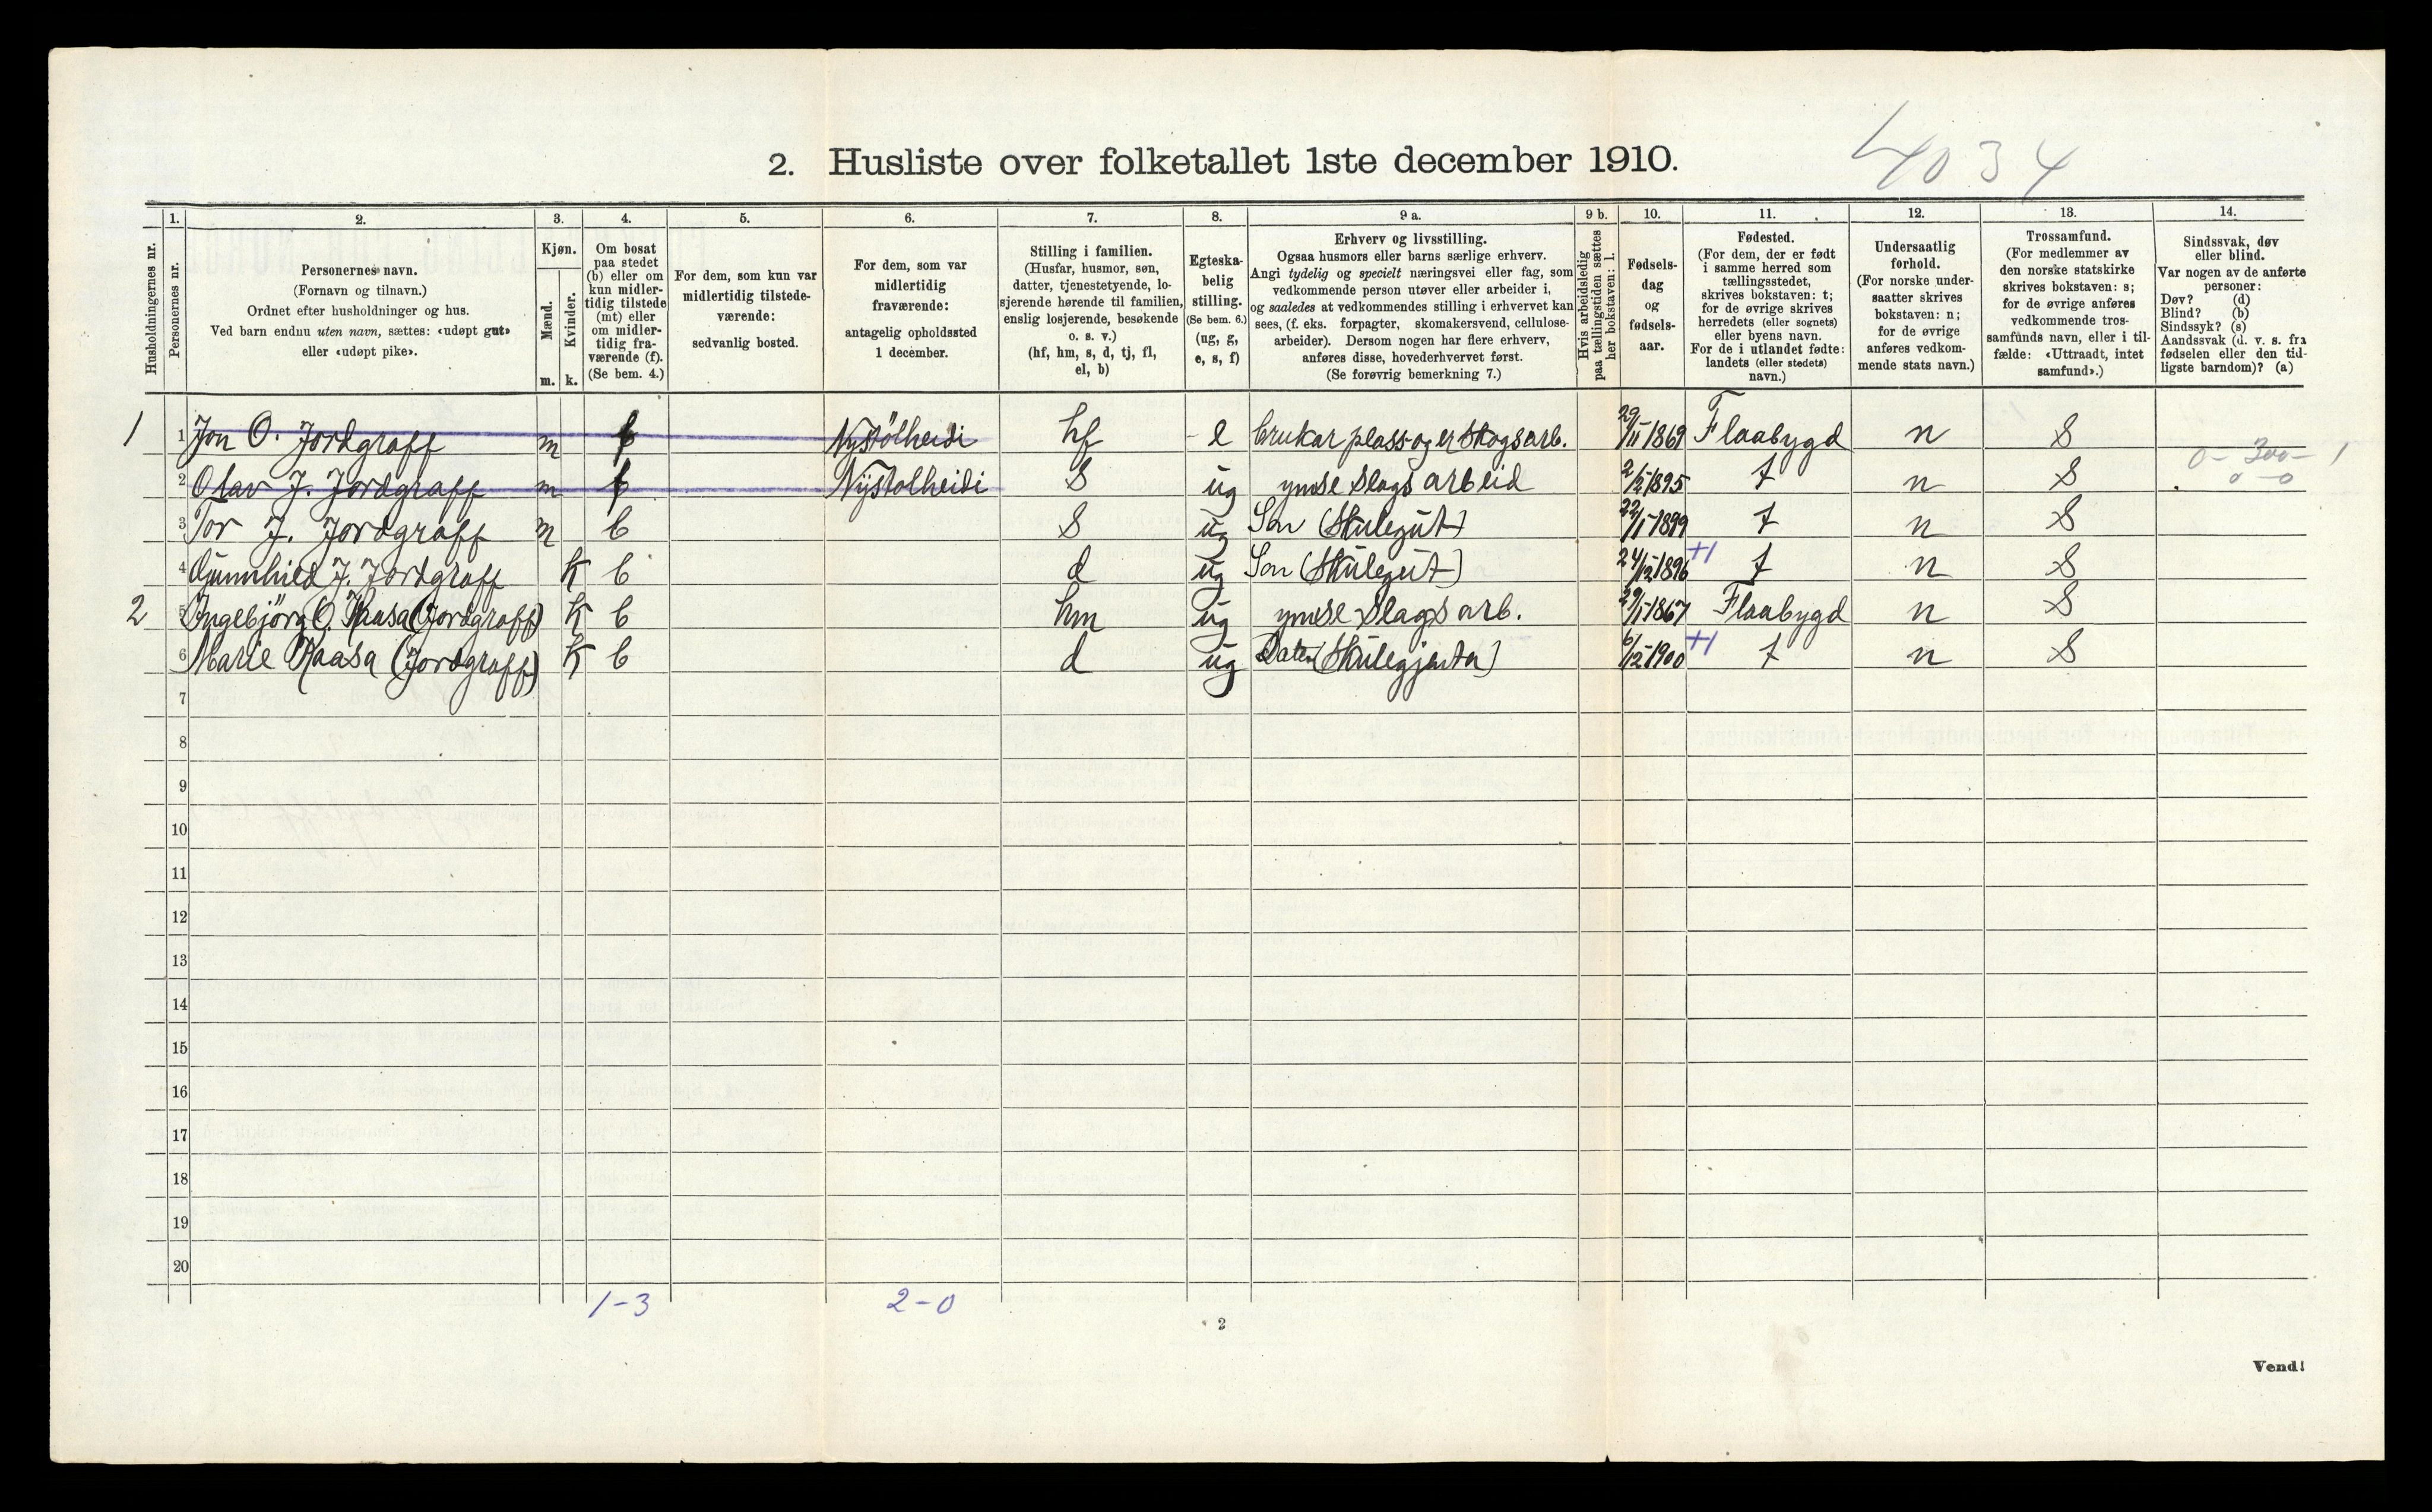 4034
2. Husliste over folketallet 1ste december 1910.
1. 2. 3. 4. 5. 6. 7. 8. 9 a. 9 b. 10. 11. 12. 13. 14.
Husholdningernes nr.
Personernes nr.
Personernes navn.
(Fornavn og tilnavn.)
Ordnet efter husholdninger og hus.
Ved barn endnu uten navn, sættes: «udøpt gut»
eller «udøpt pike».
Kjøn.
Mænd.
Kvinder.
m. k.
Om bosat
paa stedet
(b) eller om
kun midler-
tidig tilstede
(mt) eller
om midler-
tidig fra-
værende (f).
(Se bem. 4.)
For dem, som kun var
midlertidig tilstede-
værende:
sedvanlig bosted.
For dem, som var
midlertidig
fraværende:
antagelig opholdssted
1 december.
Stilling i familien.
(Husfar, husmor, søn,
datter, tjenestetyende, lo-
sjerende hørende til familien,
enslig losjerende, besøkende
o. s. v.)
(hf, hm, s, d, tj, fl,
el, b)
Egteska-
belig
stilling.
(Se bem. 6.)
(ug, g,
e, s, f)
Erhverv og livsstilling.
Ogsaa husmors eller barns særlige erhverv.
Angi tydelig og specielt næringsvei eller fag, som
vedkommende person utøver eller arbeider i,
og saaledes at vedkommendes stilling i erhvervet kan
sees, (f. eks. forpagter, skomakersvend, cellulose-
arbeider). Dersom nogen har flere erhverv,
anføres disse, hovederhvervet først.
(Se forøvrig bemerkning 7.)
Hvis arbeidsledig
paa tællingstiden sættes
her bokstaven: l.
Fødsels-
dag
og
fødsels-
aar.
Fødested.
(For dem, der er født
i samme herred som
tællingsstedet,
skrives bokstaven: t;
for de øvrige skrives
herredets (eller sognets)
eller byens navn.
For de i utlandet fødte:
landets (eller stedets)
navn.)
Undersaatlig
forhold.
(For norske under-
saatter skrives
bokstaven: n;
for de øvrige
anføres vedkom-
mende stats navn.)
Trossamfund.
(For medlemmer av
den norske statskirke
skrives bokstaven: s;
for de øvrige anføres
vedkommende tros-
samfunds navn, eller i til-
fælde: «Uttraadt, intet
samfund».)
Sindssvak, døv
eller blind.
Var nogen av de anførte
personer:
Døv? (d)
Blind? (b)
Sindssyk? (s)
Aandssvak (d. v. s. fra
fødselen eller den tid-
ligste barndom)? (a)
1 1 Jon O. Jordgraff m f Nystölheidi hf e brukar plass og er skogsarb. 29/11 1869 Flaabygd n S
0 - 300 - 1
2 Olav J. Jordgraff m f Nystolheidi S ug ymse slags arbeid 2/5 1895 t n S 0 - 0
3 Tor J. Jordgraff m b S ug Son (Skulegut) 22/1 1899 t n S
4 Gunnhild J. Jordgraff K b d ug Son (Skulegut) 24/12 1896 +1 t n S
2 5 Ingebjörg O. Kaasa (Jordgraff) K b hm ug ymse slags arb. 29/1 1867 Flaabygd n S
6 Marie Kaasa (Jordgraff) K b d ug Dater (Skulegjenta) 6/12 1900 +1 t n S
7
8
9
10
11
12
13
14
15
16
17
18
19
20
1-3 2-0
2
Vend!